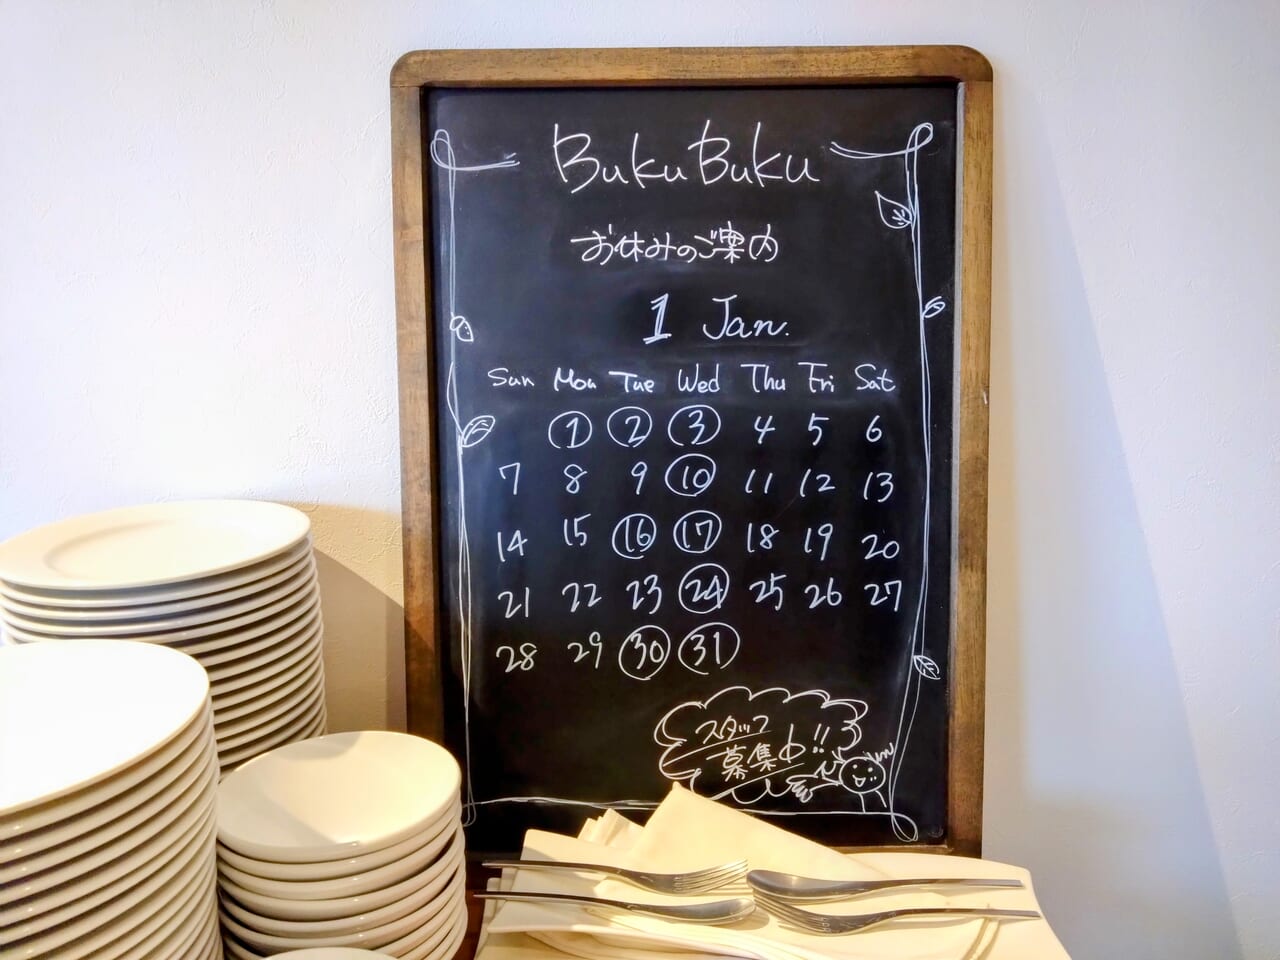 Buku Buku
お休みのご案内
1 Jan.
Sun Mon Tue Wed Thu Fri Sat
1 2 3 4 5 6
7 8 9 10 11 12 13
14 15 16 17 18 19 20
21 22 23 24 25 26 27
28 29 30 31
スタッフ
募集中!!